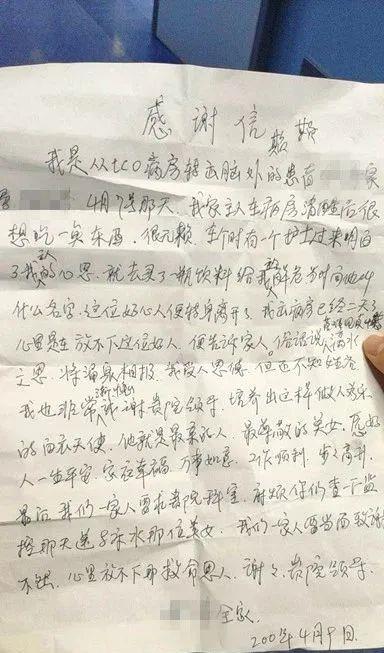 感谢信
我是从tco病房转出脑外的患者 家
属 4月7号那天,我家主人在病房清醒后很
想吃一点东西,很为难,在个时有一个护士过来明白
了我的心思,就去买了一瓶饮料给我解危,当时问她叫
什么名字,这位好心人便转身离开了,我出病房已经二天了
心里是在放不下这位好人,便告诉家人,俗话说,滴水
之恩,将涌泉相报,我受人恩德,但还不知姓名
我也非常感谢贵院领导,培养出这样做人善乐
的白衣天使,他就是最美的人,最尊敬的美女,愿好
人一生平安,家庭幸福,万事如意,工作顺利,步步高升
最后我们一家人要求贵院科室,麻烦你们查一下监
控那天送我水那位美女,我们一家人要当面致谢
不然,心里放不下那救命恩人,谢谢,贵院领导
全家
4月9日